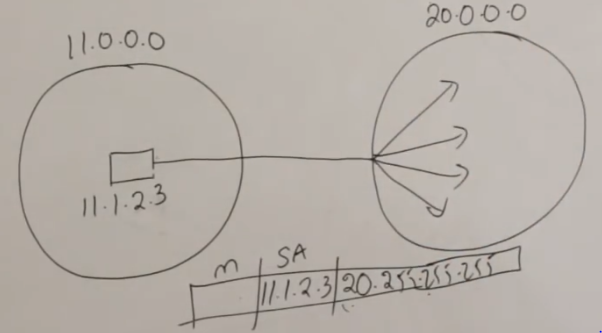 11.0.0.0
20.0.0.0
11.1.2.3
m SA
11.1.2.3 20.255.255.255